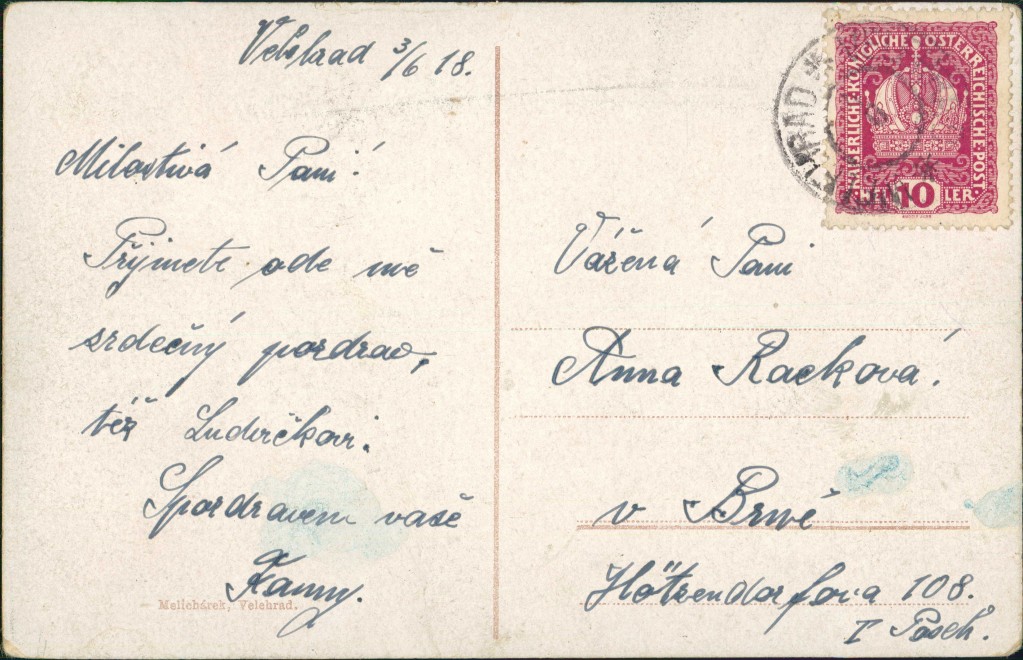 Velehrad 3/6 18.
Milostivá Paní!
Přijmete ode mě
srdečný pozdrav,
též Ludvíčkovi.
Spozdravem vaše
Fanny.
Mellebárek, Velehrad.
KAISERLICHE KÖNIGLICHE ÖSTERREICHISCHE POST
10
LER
Vážená Paní
Anna Racková.
v Brně
Hötzendorfova 108.
I Posch.